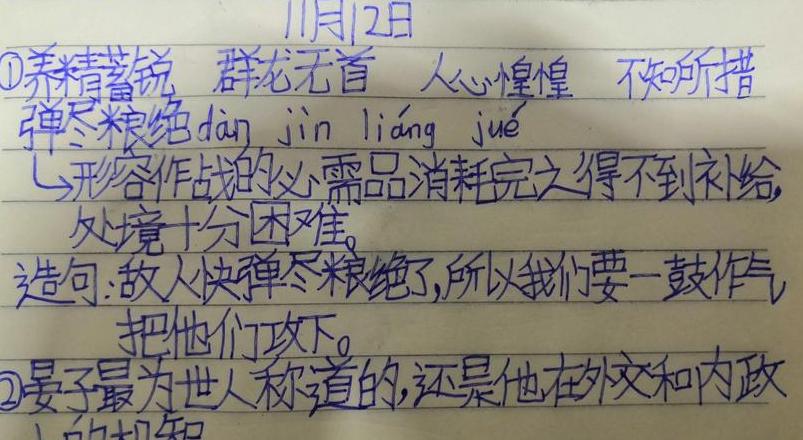 11月12日
①养精蓄锐 群龙无首 人心惶惶 不知所措
弹尽粮绝dàn jìn liáng jué
形容作战的必需品消耗完之得不到补给,
处境十分困难。
造句:敌人快弹尽粮绝了,所以我们要一鼓作气
把他们攻下。
②晏子最为世人称道的,还是他在外交和内政
上的机智